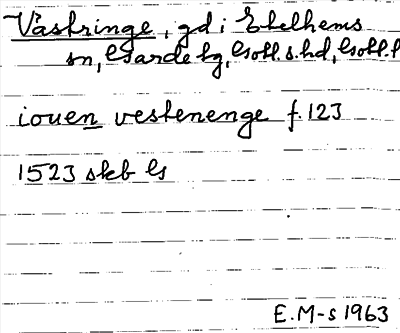 Västringe, gd i Etelhems
sn, Garde tg, Gotl. s. hd, Gotl. l
iouen vestenenge f. 123
1523 skb G
E. M-s 1963